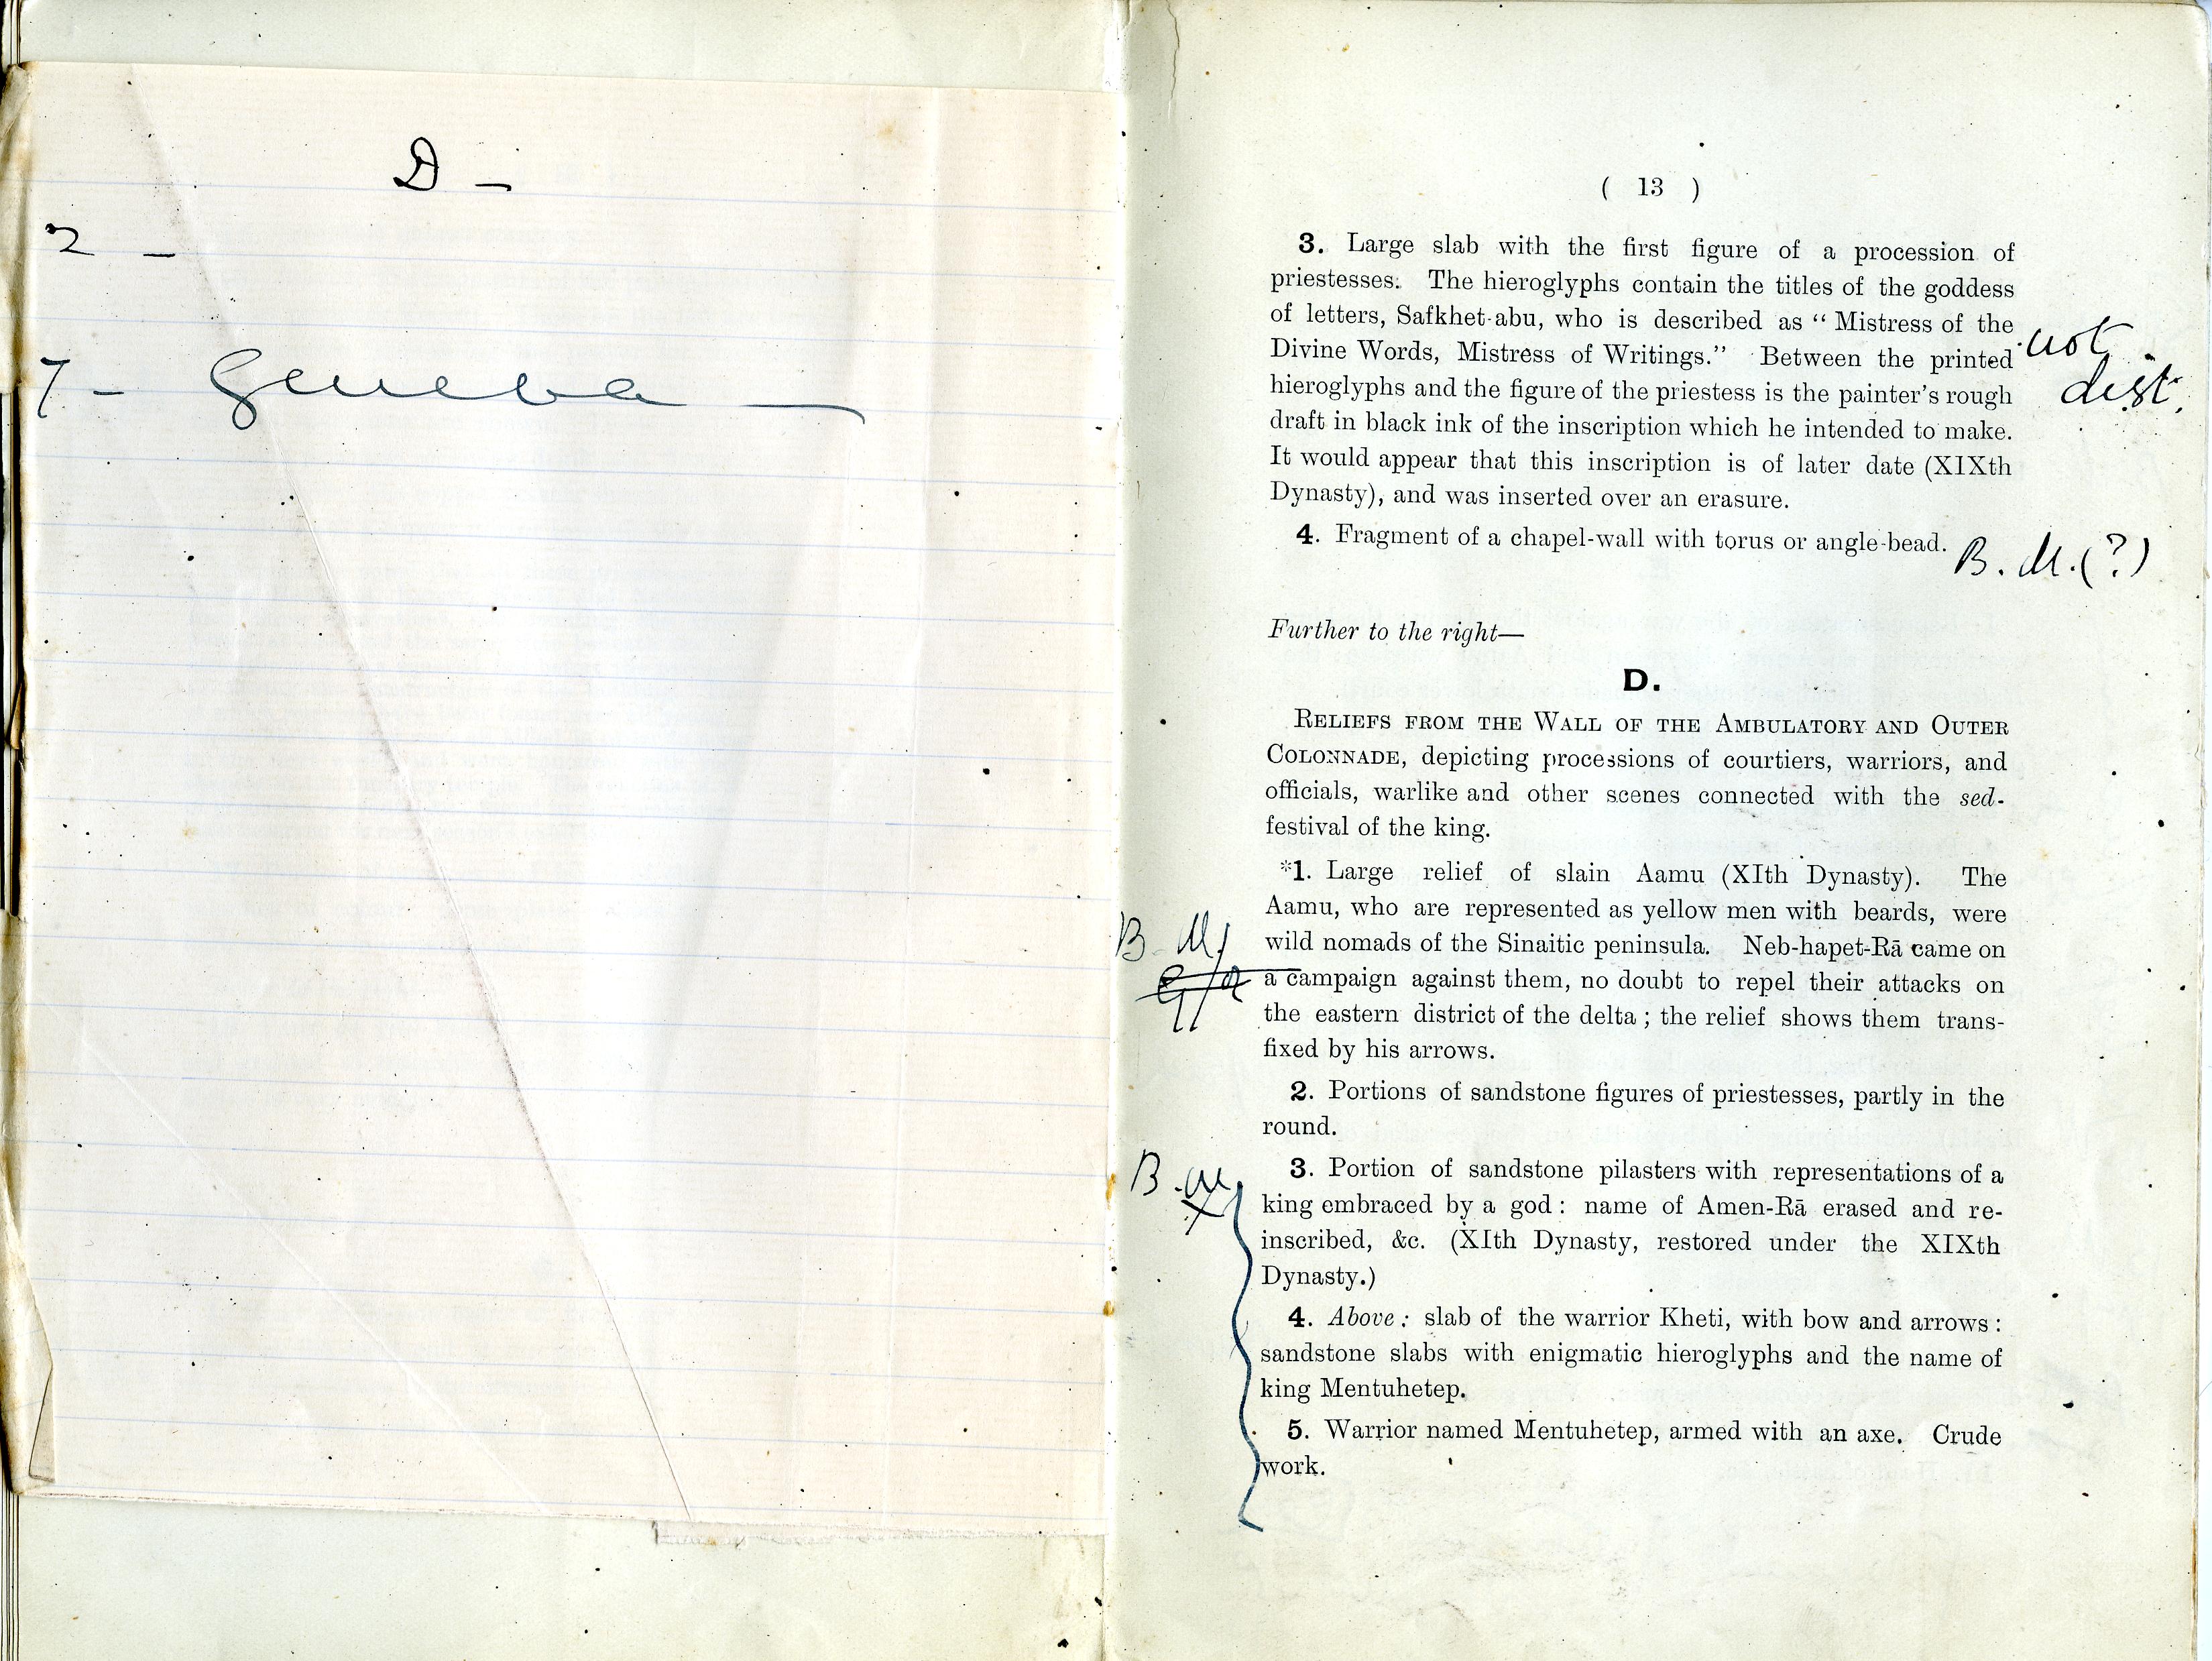 D -
2 -
7 - Geneva -
( 13 )
3. Large slab with the first figure of a procession of
priestesses. The hieroglyphs contain the titles of the goddess
of letters, Safkhet-abu, who is described as “ Mistress of the
Divine Words, Mistress of Writings.” Between the printed
hieroglyphs and the figure of the priestess is the painter's rough
draft in black ink of the inscription which he intended to make.
It would appear that this inscription is of later date (XIXth
Dynasty), and was inserted over an erasure.
not
dist.
4. Fragment of a chapel-wall with torus or angle-bead.
B. M. (?)
Further to the right—
D.
RELIEFS FROM THE WALL OF THE AMBULATORY AND OUTER
COLONNADE, depicting processions of courtiers, warriors, and
officials, warlike and other scenes connected with the sed-
festival of the king.
*1. Large relief of slain Aamu (XIth Dynasty). The
Aamu, who are represented as yellow men with beards, were
wild nomads of the Sinaitic peninsula. Neb-hapet-Rā came on
a campaign against them, no doubt to repel their attacks on
the eastern district of the delta ; the relief shows them trans-
fixed by his arrows.
B. M.
2. Portions of sandstone figures of priestesses, partly in the
round.
B. M.
X
3. Portion of sandstone pilasters with representations of a
king embraced by a god : name of Amen-Rā erased and re-
inscribed, &c. (XIth Dynasty, restored under the XIXth
Dynasty.)
4. Above : slab of the warrior Kheti, with bow and arrows :
sandstone slabs with enigmatic hieroglyphs and the name of
king Mentuhetep.
5. Warrior named Mentuhetep, armed with an axe. Crude
work.